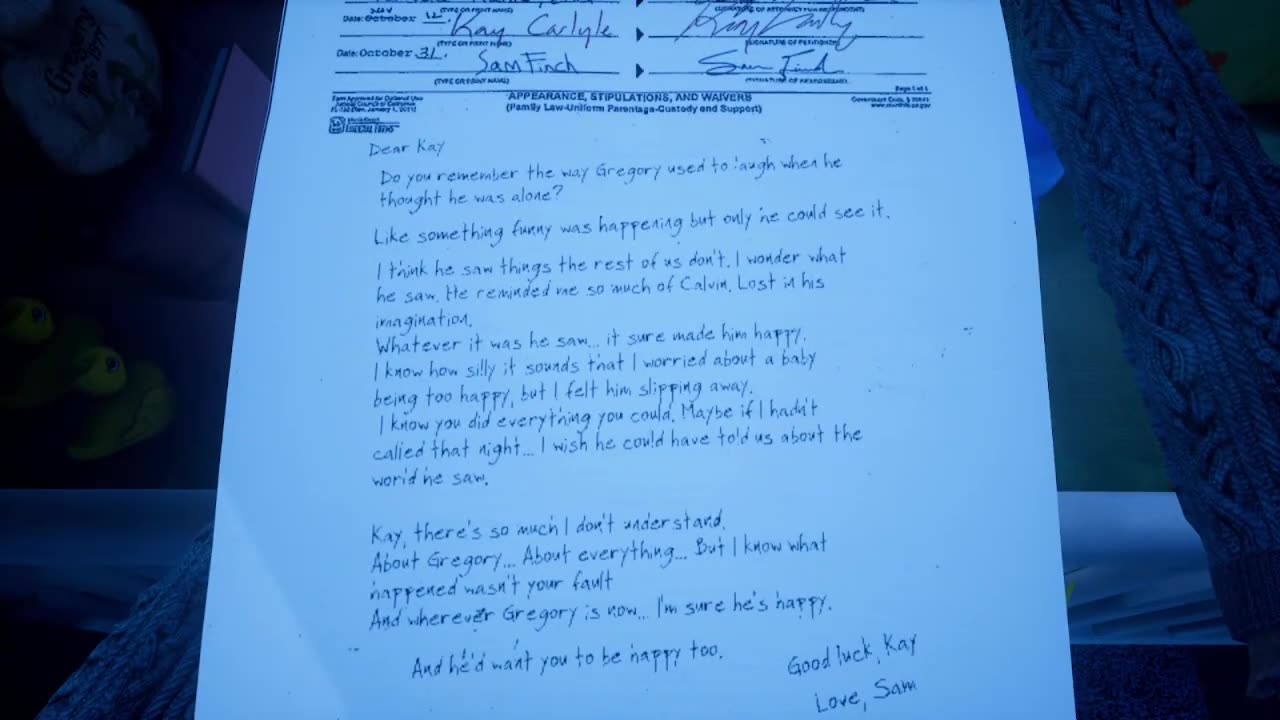 (TYPE OR PRINT NAME)
Date: October 12
Kay Carlyle
(TYPE OR PRINT NAME)
(SIGNATURE OF PETITIONER)
Date: October 31.
Sam Finch
Sam Finch
(TYPE OR PRINT NAME)
Page 1 of 1
Form Approved for Optional Use
Judicial Council of California
APPEARANCE, STIPULATIONS, AND WAIVERS
(Family Law-Uniform Parentage-Custody and Support)
Government Code,
ESSENTIAL FORMS
Dear Kay
Do you remember the way Gregory used to laugh when he
thought he was alone?
Like something funny was happening but only he could see it.
I think he saw things the rest of us don't. I wonder what
he saw. He reminded me so much of Calvin. Lost in his
imagination.
Whatever it was he saw... it sure made him happy.
I know how silly it sounds that I worried about a baby
being too happy, but I felt him slipping away.
I know you did everything you could. Maybe if I hadn't
called that night... I wish he could have told us about the
world he saw.
Kay, there's so much I don't understand.
About Gregory... About everything... But I know what
happened wasn't your fault
And wherever Gregory is now... I'm sure he's happy.
And he'd want you to be happy too.
Good luck, Kay
Love, Sam
Gregory
1976-1977